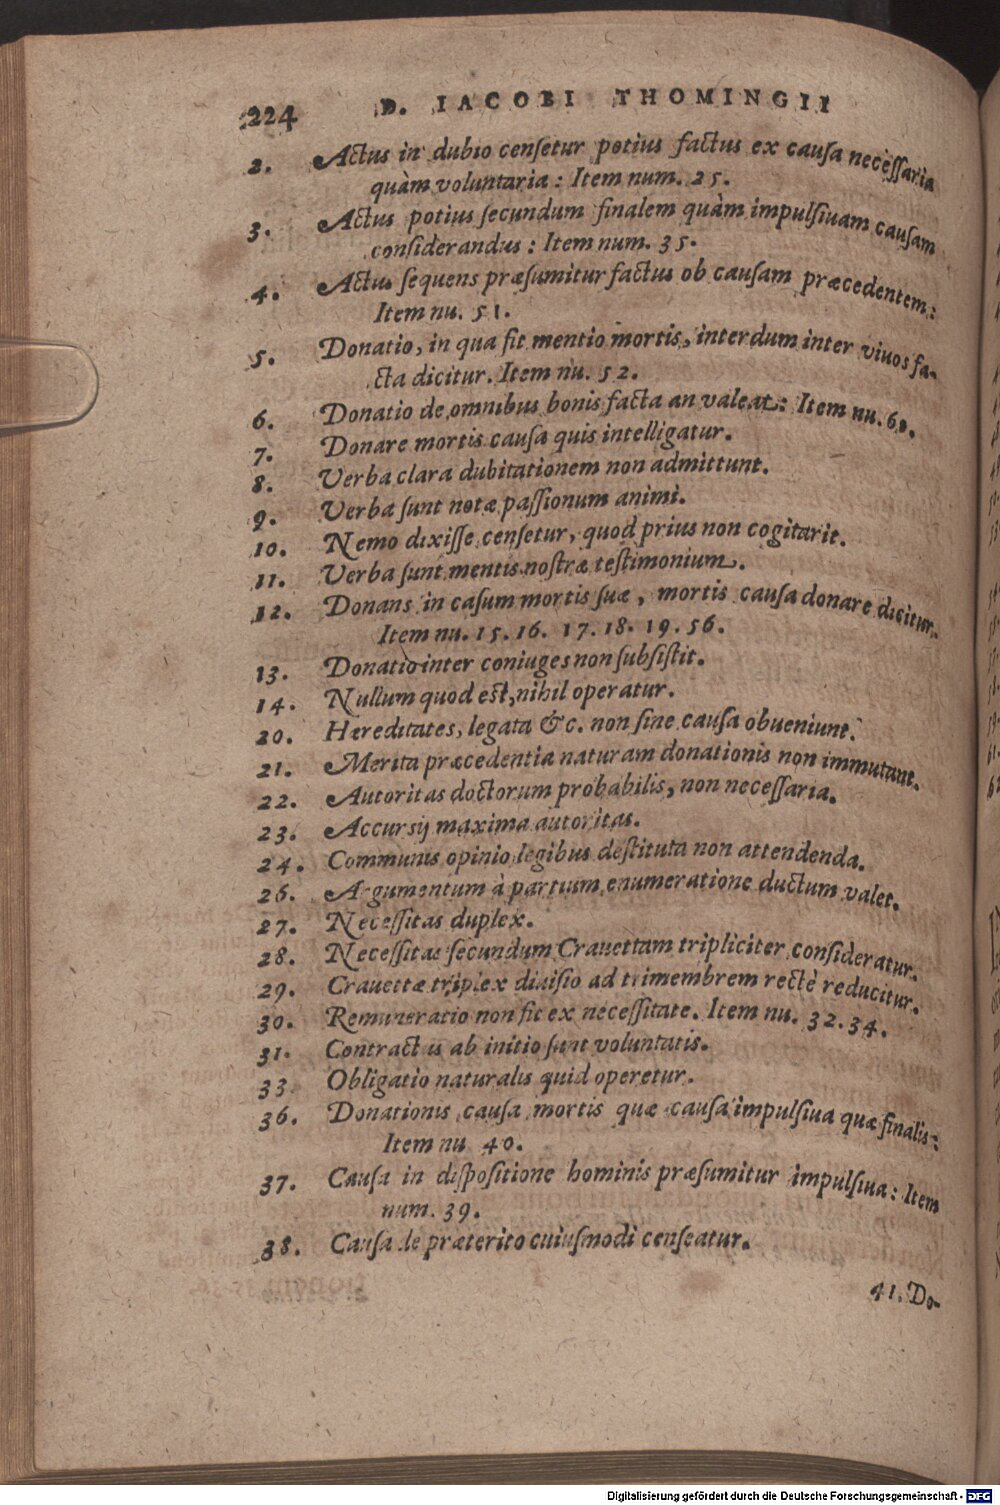 224 D. IACOBI THOMINGII
2. Actus in dubio cenſetur potius factus ex cauſa neceſſaria
quàm voluntaria: Item num. 25.
3. Actus potius ſecundum finalem quàm impulſiuam cauſam
conſiderandus: Item num. 35.
4. Actus ſequens præſumitur factus ob cauſam præcedentem:
Item nu. 51.
5. Donatio, in qua fit mentio mortis, interdum inter viuos fa-
cta dicitur. Item nu. 52.
6. Donatio de omnibus bonis facta an valeat: Item nu. 60.
7. Donare mortis cauſa quis intelligatur.
8. Verba clara dubitationem non admittunt.
9. Verba ſunt notæ paſſionum animi.
10. Nemo dixiſſe cenſetur, quod prius non cogitarit.
11. Verba ſunt mentis noſtræ teſtimonium.
12. Donans in caſum mortis ſuæ, mortis cauſa donare dicitur.
Item nu. 15. 16. 17. 18. 19. 56.
13. Donatio inter coniuges non ſubſiſtit.
14. Nullum quod eſt, nihil operatur.
20. Hereditates, legata &c. non ſine cauſa obueniunt.
21. Merita præcedentia naturam donationis non immutant.
22. Autoritas doctorum probabilis, non neceſſaria.
23. Accurſij maxima autoritas.
24. Communis opinio legibus deſtituta non attendenda.
26. Argumentum à partium enumeratione ductum valet.
27. Neceſſitas duplex.
28. Neceſſitas ſecundum Crauettam tripliciter conſideratur.
29. Crauettæ triplex diuiſio ad trimembrem rectè reducitur.
30. Remuneratio non fit ex neceſſitate. Item nu. 32. 34.
31. Contractus ab initio ſunt voluntatis.
33. Obligatio naturalis quid operetur.
36. Donationis cauſa mortis quæ cauſa impulſiua quæ finalis:
Item nu 40.
37. Cauſa in diſpoſitione hominis præſumitur impulſiua: Item
num. 39.
38. Cauſa de præterito cuiuſmodi cenſeatur.
41. Do-
Digitalisierung gefördert durch die Deutsche Forschungsgemeinschaft - DFG